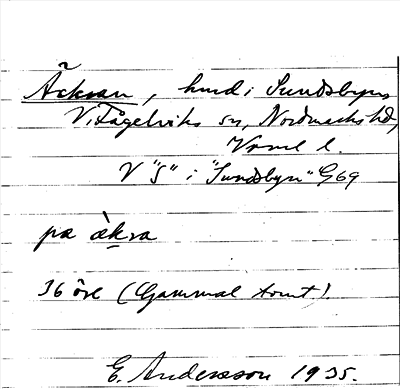 Åckran, hmd i Sundsbyn,
V. Fågelviks sn, Nordmarks hd,
Värml l.
V "S" i "Sundsbyn" G69
pa àkra
36 öre (Gammal tomt).
E. Andersson 1935.